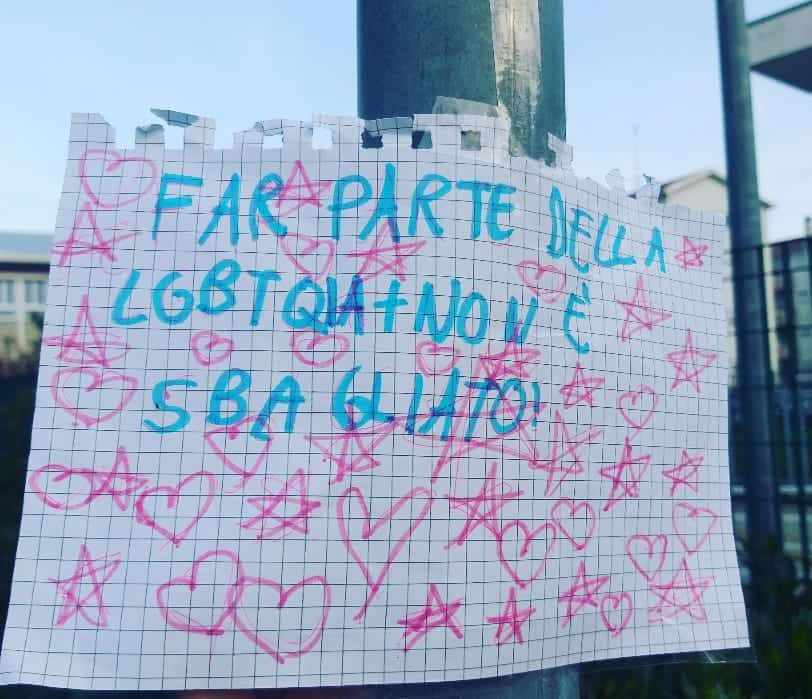 FAR PARTE DELLA
LGBTQIA+ NON È
SBAGLIATO!